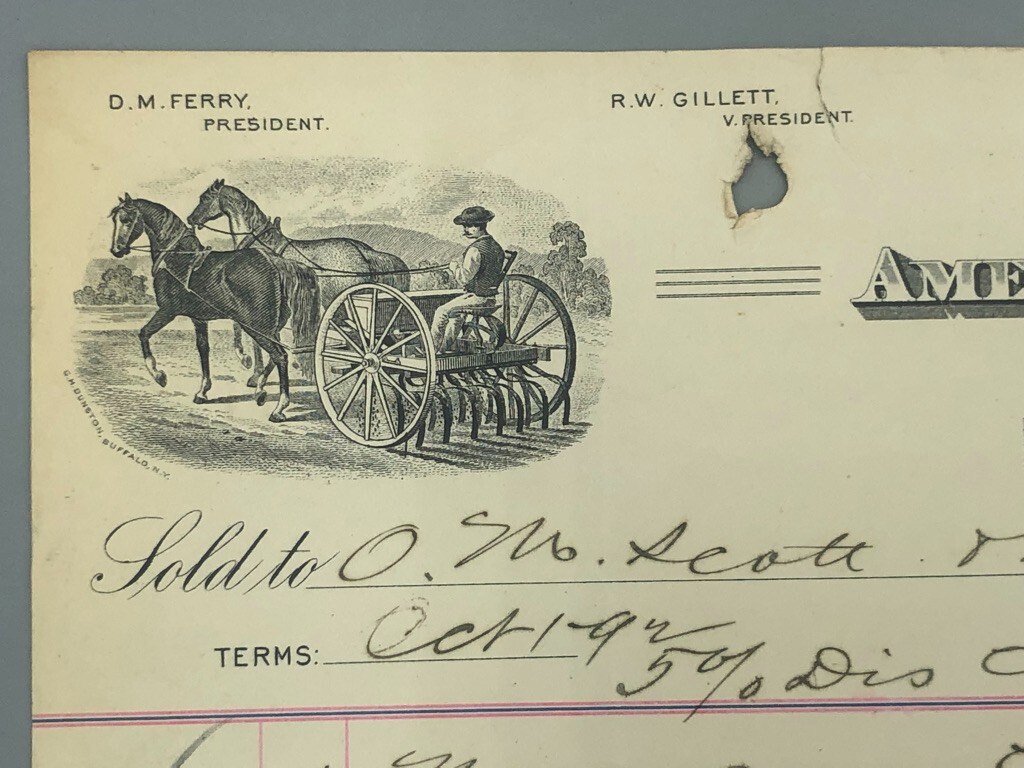 D. M. FERRY,
PRESIDENT.
R. W. GILLETT,
V. PRESIDENT.
AME
G. H. DUNSTON, BUFFALO, N.Y.
Sold to O. M. Scott
TERMS: Oct 1-92
5% Dis